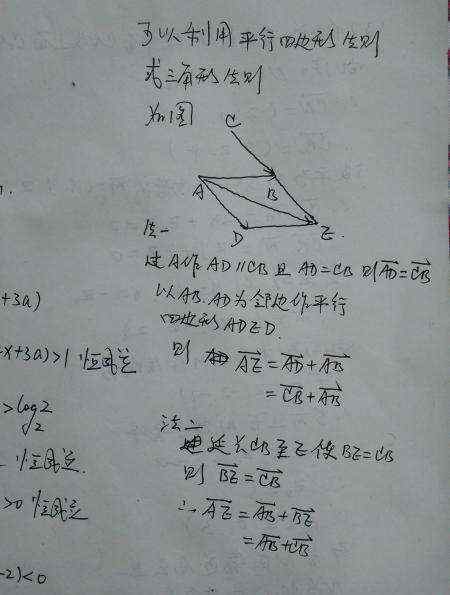 可以利用平行四边形法则
或三角形法则
如图
C
A
B
D
E.
法一
过A作AD∥CB且AD=CB则\overrightarrow{AD}=\overrightarrow{CB}
以AB.AD为邻边作平行
四边形ADED.
则 \overrightarrow{AE}=\overrightarrow{AD}+\overrightarrow{AB}
=\overrightarrow{CB}+\overrightarrow{AB}
法二
延长CB至E使BE=CB
则 \overrightarrow{BE}=\overrightarrow{CB}
∴\overrightarrow{AE}=\overrightarrow{AB}+\overrightarrow{BE}
=\overrightarrow{AB}+\overrightarrow{CB}
+3a)
-x+3a)>1 恒成立
>log₂2
恒成立.
>0 恒成立
-2)<0